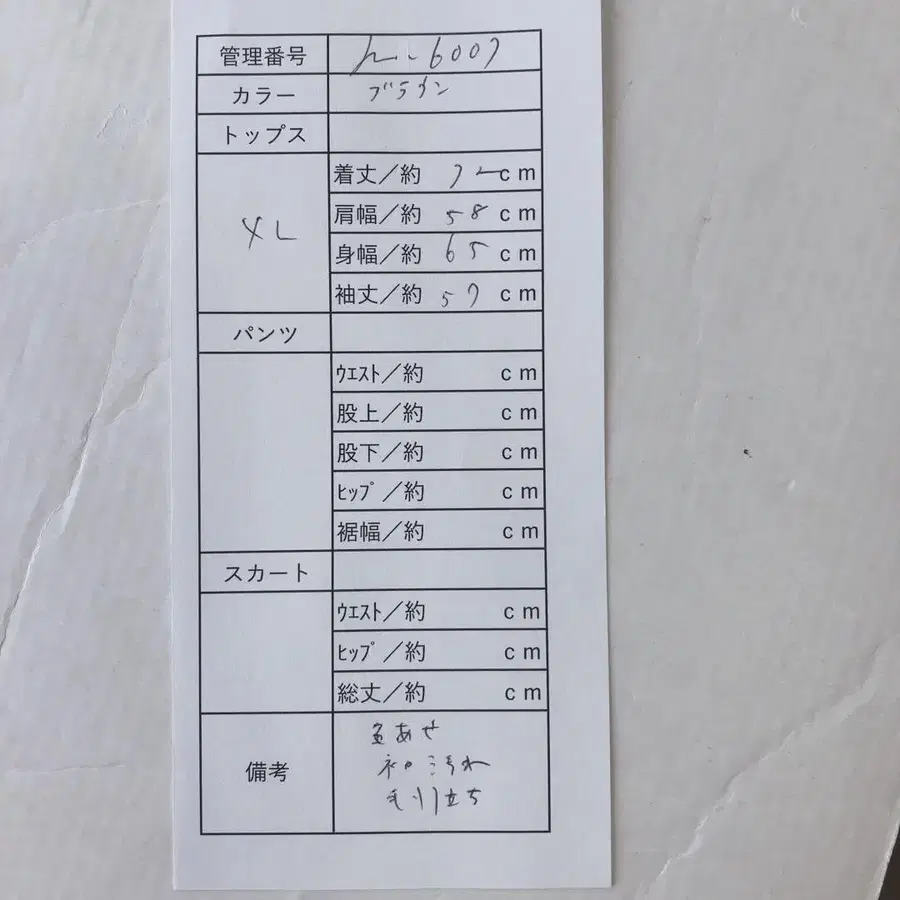 管理番号 6007
カラー ブラウン
トップス
XL
着丈／約 72 cm
肩幅／約 58 cm
身幅／約 65 cm
袖丈／約 57 cm
パンツ
ｳｴｽﾄ／約 cm
股上／約 cm
股下／約 cm
ﾋｯﾌﾟ／約 cm
裾幅／約 cm
スカート
ｳｴｽﾄ／約 cm
ﾋｯﾌﾟ／約 cm
総丈／約 cm
備考
色あせ
袖汚れ
毛羽立ち